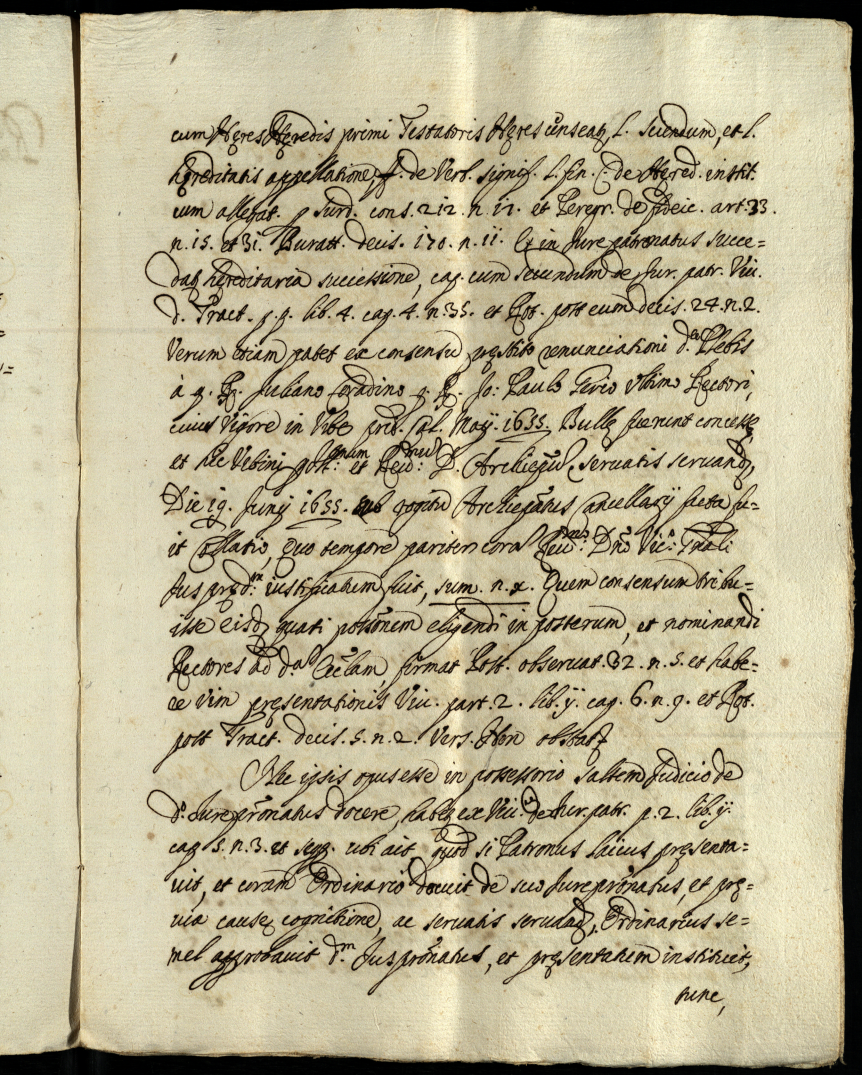 cum Heres Heredis primi Testatoris Heres censeatʒ, l. secundum, et l.
hęreditatis appellatione ff. de Verb. signif. l. fin. C. de Hęred. instit.
cum allegat. p Surd. cons. 212. n. 12. et Peregr. de fideic. art. 33.
n. 15. et 31. Buratt. decis. 170. n. 11. Et in Jure patronatus succe=
datʒ hęreditaria successione, cap. cum secundum de Jur. patr. Viu.
d. Tract. p. p. lib. 4. cap. 4. n. 35. et Rot. post eum decis. 24. n. 2.
Verum etiam patet ex consensu pręstito renunciationi dᵉ Plebis
à q. Juliano q. Jo: Paulo ultimo Rectori,
cuius Vigore in Vrbe prid. Cal. Maij. 1655. Bullę fuerunt concessę,
et hic Vrbini post: et Reu: D. Archiepũ, seruatis seruand,
Die 19. Junij 1655. sub rogitu Archiepãtus Cancellarij facta fu=
it Collatio, Quo tempore pariter corã Reu: Dnõ Vic: Gnãli
Jus pręd: iustificatum fuit, sum. n. x. Quem consensum tribu=
isse eisdʒ quasi possõnem eligendi in posterum, et nominandi
Rectores ad dᵃ Ecclam, firmat Post. obseruat. 32. n. 5. et habe=
re vim pręsentationis Viu. part. 2. lib. ij. cap. 6. n. 9. et Rot.
post Tract. decis. 5. n. 2. Vers. Non obstatʒ
Nec ipsis opus esse in possessorio saltem Judicio de
dᵒ Jureprõnatus docere, habetʒ ex Viu. de Jur. patr. p. 2. lib. ij.
cap. 5. n. 3. et seqq. ubi ait quod si Patronus laicus pręsenta=
uit, et coram Ordinario docuit de suo Jureprõnatus, et prę=
uia causę cognitione, ac seruatis seruad, Ordinarius se=
mel approbauit dᵐ Jusprõnatus, et pręsentatum instituit,
tunc,